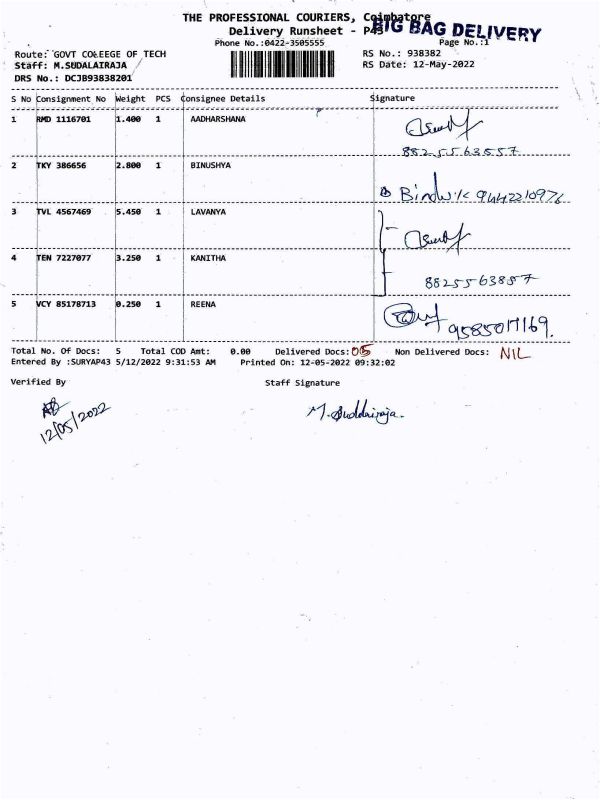 THE PROFESSIONAL COURIERS, Coimbatore
Delivery Runsheet - P43
BIG BAG DELIVERY
Phone No.:0422-3505555
Page No.:1
Route: GOVT COLEEGE OF TECH
RS No.: 938382
Staff: M.SUDALAIRAJA
RS Date: 12-May-2022
DRS No.: DCJB93838201
S No Consignment No Weight PCS Consignee Details Signature
1 RMD 1116701 1.400 1 AADHARSHANA
8825563557
2 TKY 386656 2.800 1 BINUSHYA
9442210976
3 TVL 4567469 5.450 1 LAVANYA
4 TEN 7227077 3.250 1 KANITHA
8825563857
5 VCY 85178713 0.250 1 REENA
9585017169.
Total No. Of Docs: 5 Total COD Amt: 0.00 Delivered Docs: 05 Non Delivered Docs: NIL
Entered By :SURYAP43 5/12/2022 9:31:53 AM Printed On: 12-05-2022 09:32:02
Verified By Staff Signature
12/05/2022
M. Suddairaja.